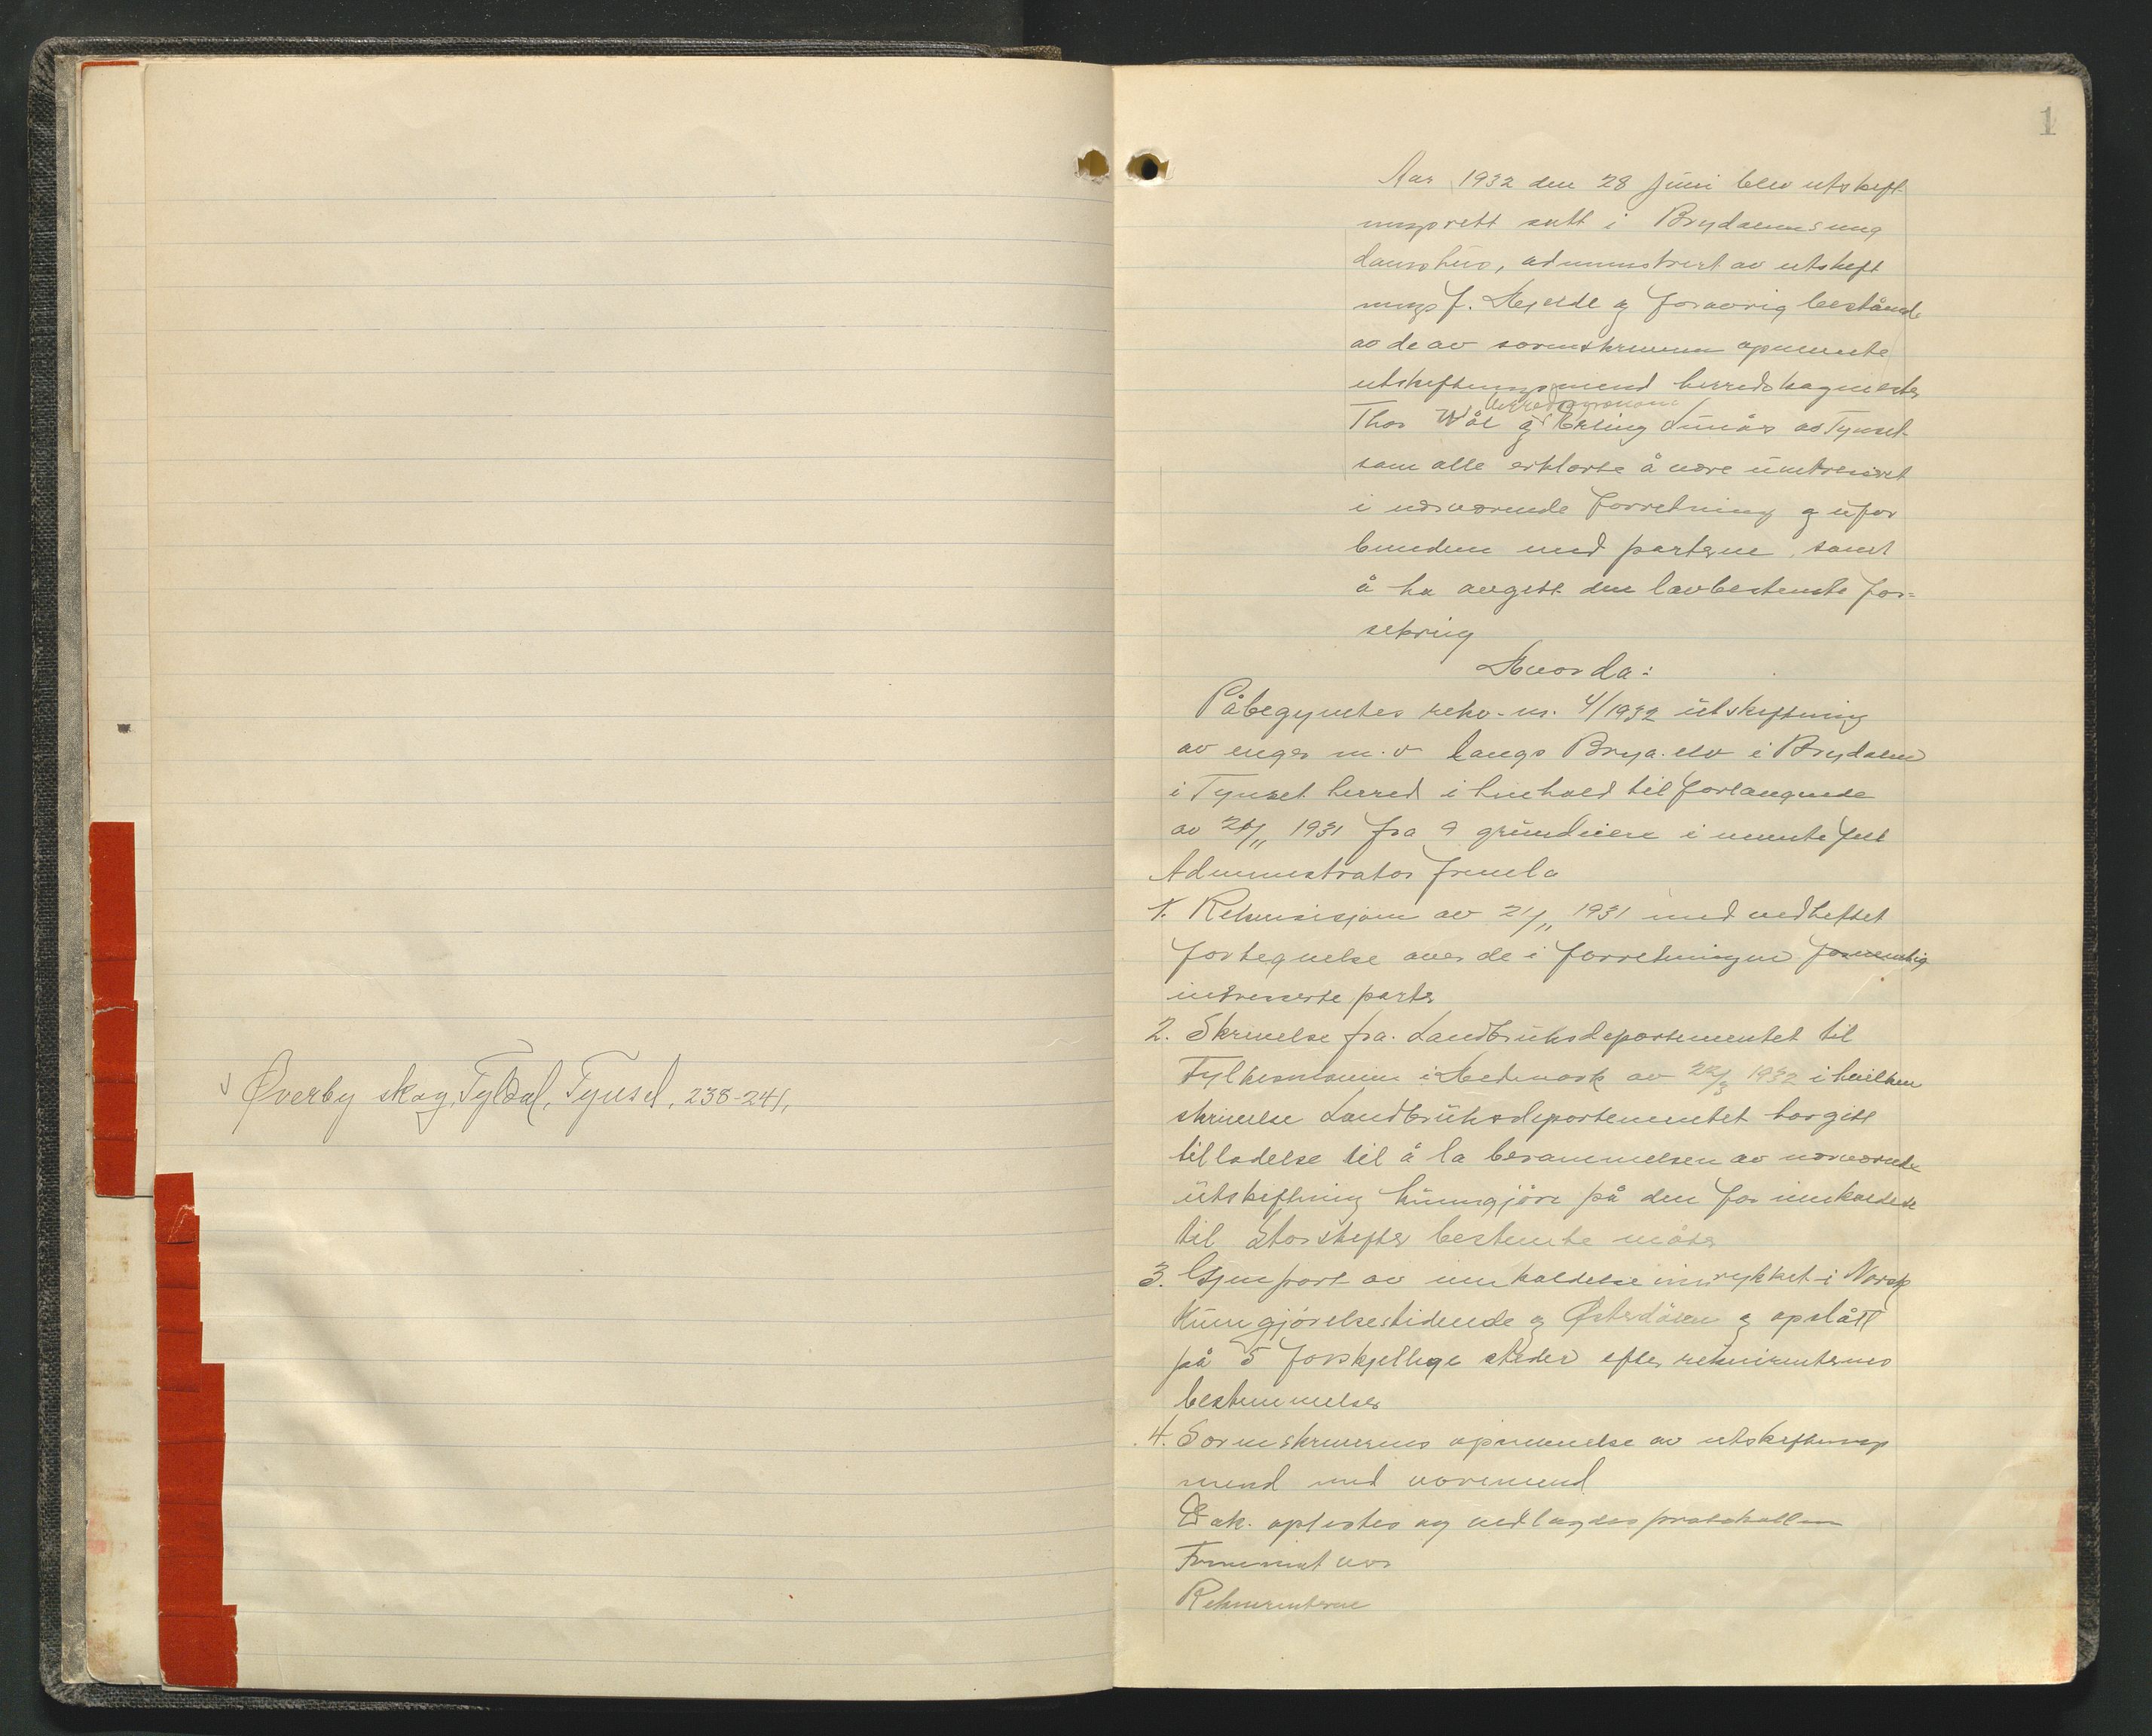 Øverby skog, Tyldal, Tynset, 238-241,
1
Aar 1932 den 28 juni blev utskift
ningsrett satt i Brydalens ung
domshus, administrert av utskift
ningsf. Mjelde og forøvrig bestånde
av de av sorenskriveren opnevnte
utskiftningsmend herredskagmester
herredsagronom
Thor Wål og Erling Lunås av Tynset
som alle erklærte å være uintresert
i nærværende forretning og ufor
bunden med partene, samt
å ha avgitt den lovbestemte for-
sikring
Hvorda:
Påbegyntes rekv. nr. 4/1932 utskiftning
av enger m.v langs Brya elv i Brydalen
i Tynset herred i henhold til forlangende
av 21/11 1931 fra 9 grundeiere i nevnte felt
Administrator fremla
1. Rekvisisjon av 21/11 1931 med vedheftet
fortegnelse over de i forretningen formentlig
intresserte parter
2. Skrivelse fra Landbruksdepartementet til
Fylkesmannen i Hedmark av 22/3 1932 i hvilken
skrivelse Landbruksdepartementet har gitt
tilladelse til å la berammelsen av nærværende
utskiftning kunngjøre på den for innkaldelse
til storskifter bestemte måter
3. Gjenpart av innkaldelse innrykket i Norsk
Kunngjørelsestidende og Østerdølen og opslått
på 5 forskjellige steder efter rekvirenternes
bestemmelser
4. Sorenskriverens opnevnelse av utskiftnings
mend med varemend
Dok. oplestes og vedlagdes protokollen
Fremmøtt var
Rekvirentene